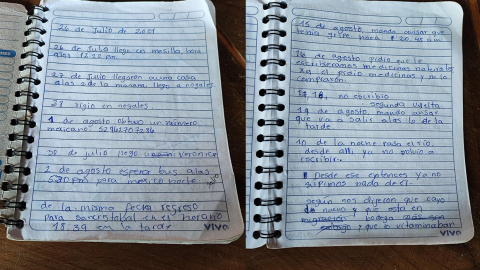 26 de Julio de 2001
26 de Julio llego en mesilla hora
alas 12:22 pm.
27 de Julio llegaron a una casa
alas 2 de la mañana llego a nogales
28 sigio en nogales
1 de agosto obtuvo un número
mexicano
30 de julio llego Veronica
2 de agosto espera bus alas
5:30 pm para mexico norte
de la misma fecha regreso
para sancristobal en el horario
18:39 em la tarde
VIVO
15 de agosto, mando avisar que
tenia gripe hora 20:45 am
16 de agosto pidio que le
medicinas naturales
el pidio medicinas y no lo
compraron.
17, 18, no escribio
segunda vuelta
19 de agosto mando avisar
que va a salir alas 10 de la
tarde.
10 de la noche pasa el rio,
desde alli ya no volvio a
escribir.
Desde ese entonces ya no
supimos nada de el.
según nos dijeron que cayo
de nuevo y que esta en
migración bodega
y que lo
VIVO